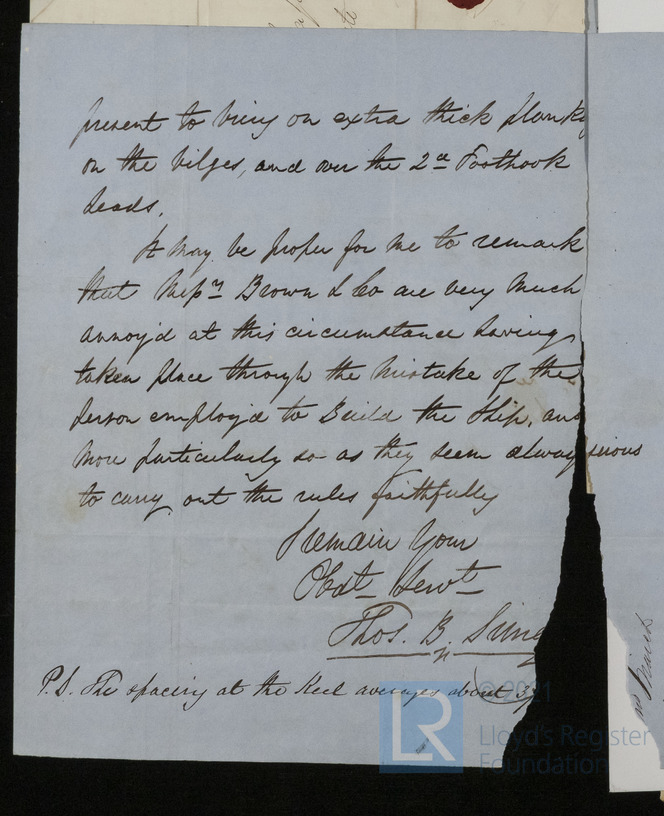 present to bring on extra thick planks
on the bilges, and over the 2d Foothook
heads.
It may be proper for me to remark
that Messrs Brown & Co are very much
annoy'd at this circumstance having
taken place through the mistake of the
person employ'd to Build the Ship, and
more particularly so as they seem always
to carry out the rules faithfully
I remain Your
Obdt Servt
Thos. B.
P.S. The spacing at the Keel averages about
© 2021
LR
Lloyd's Register
Foundation